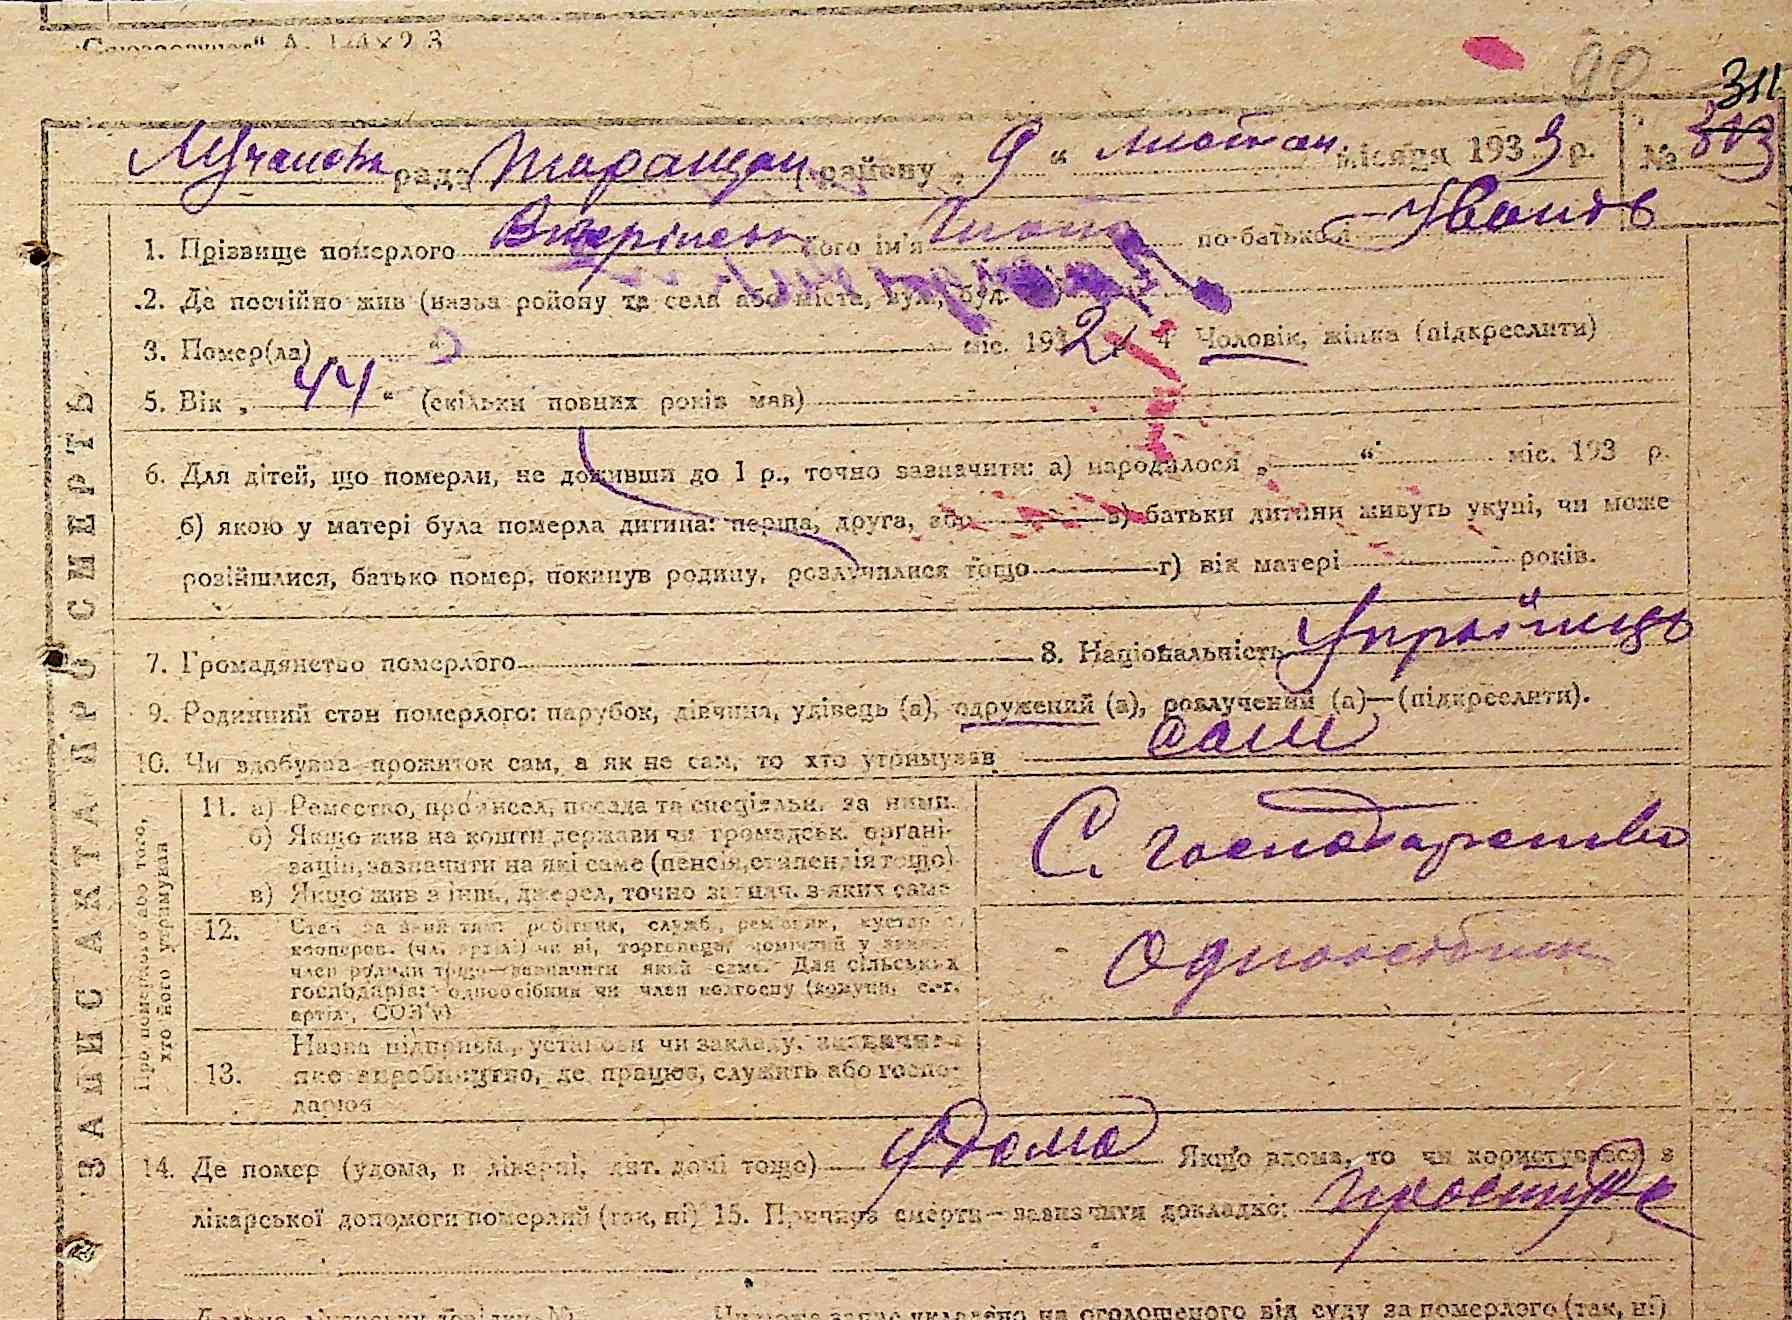 90 311
Лучанська рада Таращан району „ 9 “ листопан місяця 1933 р. №
1. Прізвище померлого його ім'я по-батькові Іванів
2. Де постійно жив (назва району та села або міста, вул., буд.
3. Помер(ла) „ “ міс. 1932 р. 4 Чоловік, жінка (підкреслити)
5. Вік „ 44 “ (скільки повних років мав)
6. Для дітей, що померли, не доживши до 1 р., точно зазначити: а) народилося „ “ міс. 193 р.
б) якою у матері була померла дитина: перша, друга, або в) батьки дитини живуть укупі, чи може
розійшлися, батько помер, покинув родину, розлучилися тощо г) вік матері років.
7. Громадянство померлого 8. Національність Українець
9. Родинний стан померлого: парубок, дівчина, удівець (а), одружений (а), розлучений (а)—(підкреслити).
10. Чи здобував прожиток сам, а як не сам, то хто утримував сам
ЗАПИС АКТА ПРО СМЕРТЬ
Про померлого або того, хто його утримував
11. а) Ремество, промисел, посада та спеціяльн. за ними.
б) Якщо жив на кошти держави чи громадськ. органі-
зацій, зазначити на які саме (пенсія, стипендія тощо)
в) Якщо жив з інш. джерел, точно зазнач. з яких саме
С. господарство
12. Стан за занятям: робітник, служб., ремісник, кустар
кооперов. (чл. артілі) чи ні, торговець,
член родини тощо—зазначити який саме. Для сільських
господарів: одноосібник чи член колгоспу (комуни, с.-г.
артіл., СОЗ'у)
Одноосібник
13. Назва підприєм., установи чи закладу,
яке виробництво, де працює, служить або госпо-
дарює
14. Де помер (удома, в лікарні, дит. домі тощо) Удома Якщо вдома, то чи користувався з
лікарської допомоги померлий (так, ні) 15. Причина смерти—зазначити докладно:
Чи може запис укладено на оголошеного від суду за померлого (так, ні)